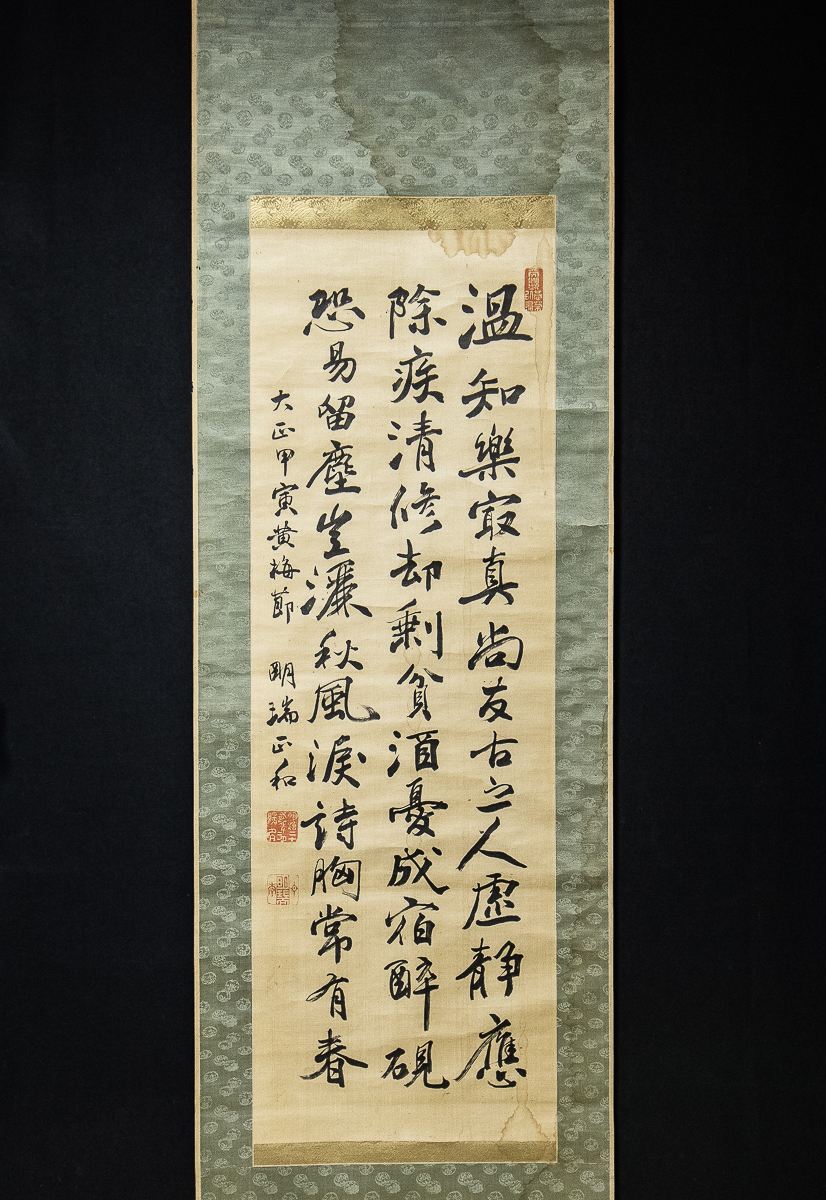 温知樂寂真尚友古之人虛靜應
除疾清修却剩貧酒憂成宿醉硯
恐易留塵豈灑秋風淚詩胸常有春
大正甲寅黄梅節 明瑞正和